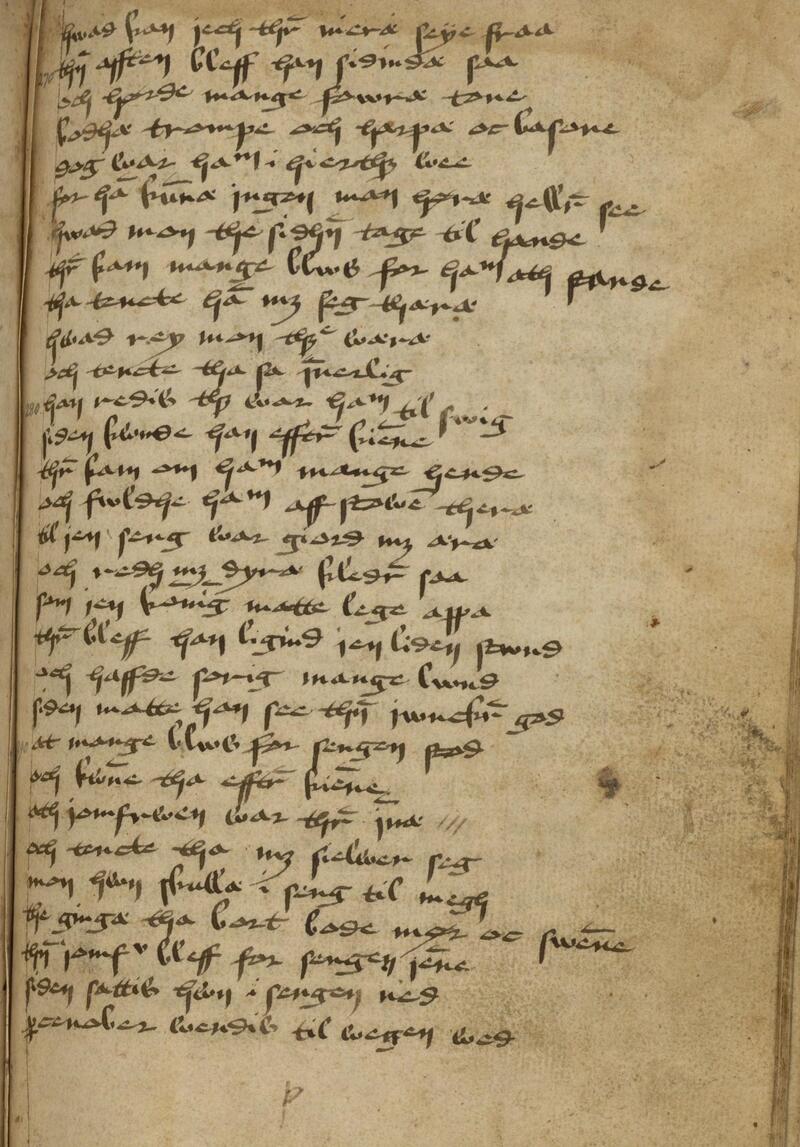 hwad kan jech thr̄ mera seye fraa
270 thn̄ afften bleff han sidindæ saa
och hørde mange fowræ tone
bodhæ trompe och harpæ oc basone
dog war haᵐ i hierthꝫ wee
for hā kūnæ jngen man høræ hellr̄ see
hwad mon the sidhn̄ tage til hande
thr̄ kam mange blws for haᵐ ath stande
tha tencte hā mꝫ seg thæræ
hwad rey mon thꝫ wæra
och tencte tha sa jn̄erlig
280 han redis thꝫ war haᵐ til swig
siden kwnde han efftr̄ kiēne
thr̄ kam om haᵐ mange hende
och fwldhe haᵐ aff stowē theræ
til jen seng war giord mꝫ æra
och redh mꝫ dyræ kledr̄ saa
som jen konig matte lege appa
thr̄ bleff han ligind jen liden stwnd
och haffde sorig mange lwnd
siden matte han see thn̄ jwnckr̄ god
at mange blws for sengen stod
och kwn̄e tha efftr̄ kiēne
ath jomfrwen war thr̄ jn̄æ ///
och tencte tha mꝫ sielwer seg
mon hwn skullæ i seng til megh
the ginga tha bort bode møȝr oc swēne
thn̄ jomfᵛ bleff for sengen jēne
siden sattis hwn i sengen ned
ꝑtenober wendis til wegen wed